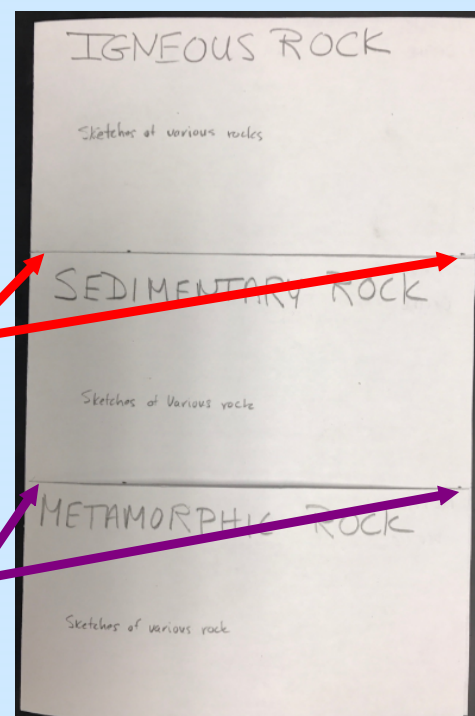 IGNEOUS ROCK
Sketches of various rocks
SEDIMENTARY ROCK
Sketches of Various rock
METAMORPHIC ROCK
Sketches of various rock